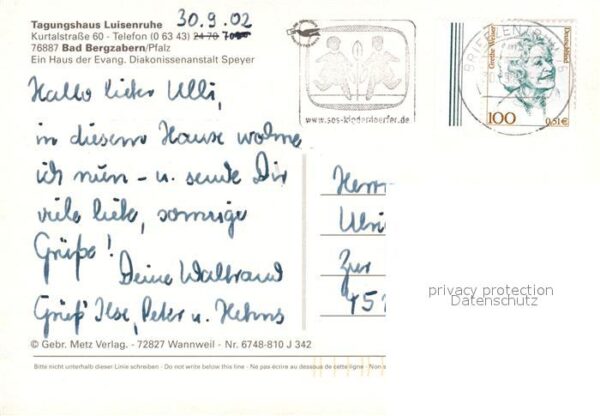 Tagungshaus Luisenruhe 30.9.02
Kurtalstraße 60 · Telefon (0 63 43) 24 70
76887 Bad Bergzabern/Pfalz
Ein Haus der Evang. Diakonissenanstalt Speyer
www.sos-kinderdoerfer.de
BRIEFZENTRUM
Grethe Weiser
Deutschland
100 0,51€
Hallo lieber Ulli,
in diesem Hause wohne
ich nun - u. sende Dir
viele liebe, sonnige
Grüße!
Deine Waltraud
Grüß' Ilse, Peter u. Helms
Herrn
Ulri
Zur
451
privacy protection
Datenschutz
© Gebr. Metz Verlag. - 72827 Wannweil - Nr. 6748-810 J 342
Bitte nicht unterhalb dieser Linie schreiben · Do not write below this line · Ne pas écrire au dessous de cette ligne · Non s